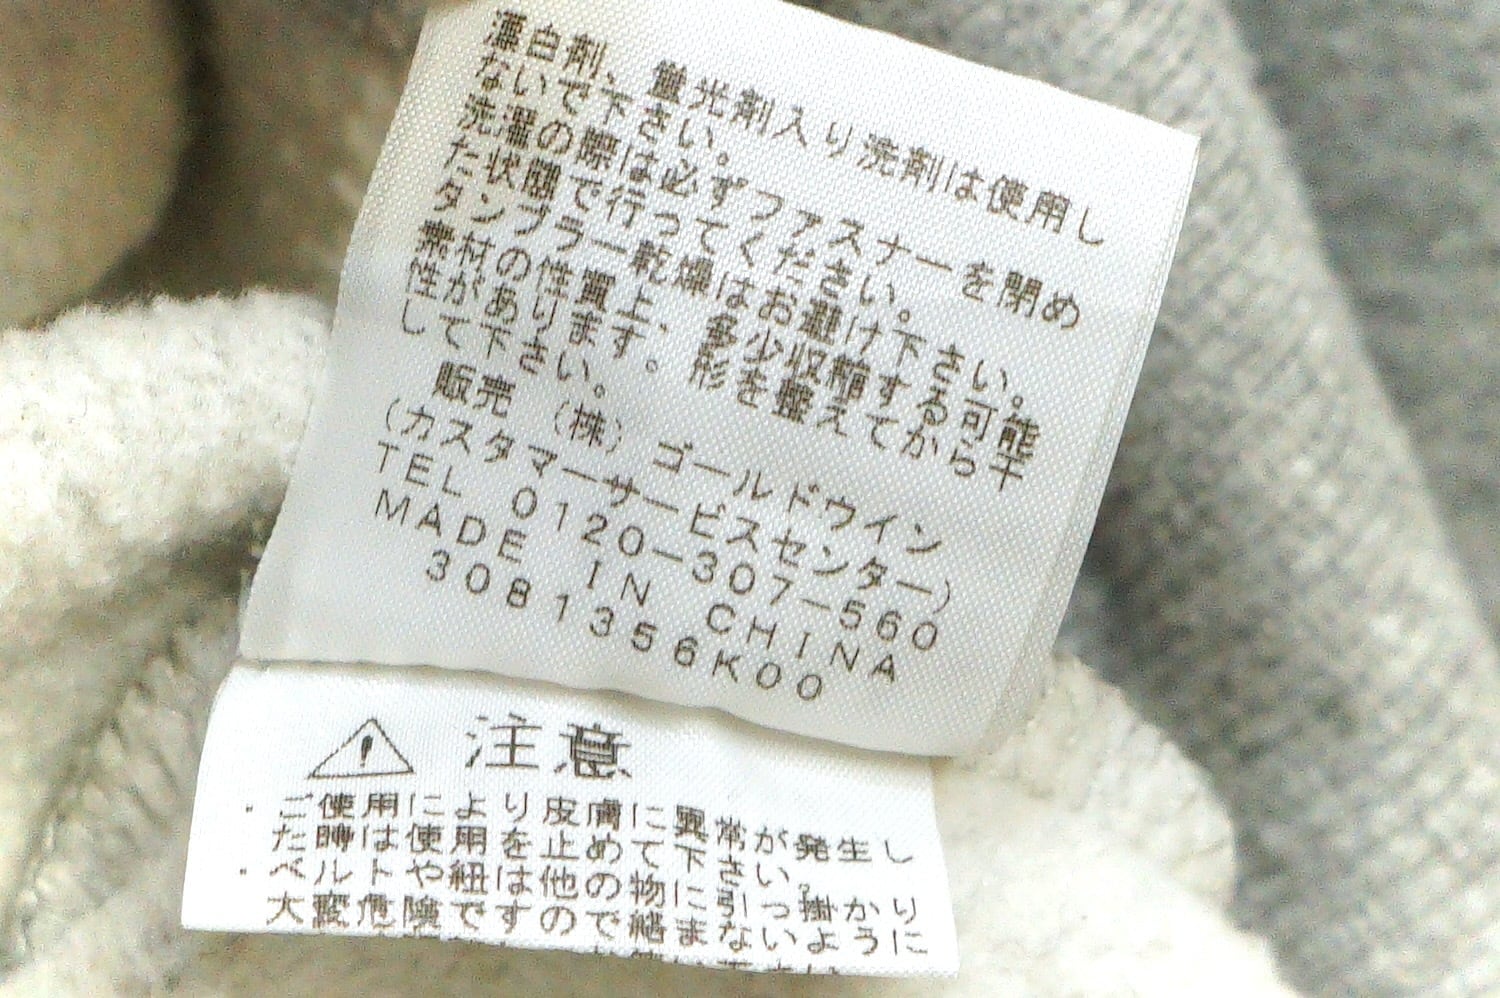 漂白剤、蛍光剤入り洗剤は使用し
ないで下さい。
洗濯の際は必ずファスナーを閉め
た状態で行ってください。
タンブラー乾燥はお避け下さい。
素材の性質上、多少収縮する可能
性があります。形を整えてから干
して下さい。
販売 (株)ゴールドウイン
(カスタマーサービスセンター)
TEL 0120-307-560
MADE IN CHINA
3081356K00
注意
・ご使用により皮膚に異常が発生し
た時は使用を止めて下さい。
・ベルトや紐は他の物に引っ掛かり
大変危険ですので絡まないように